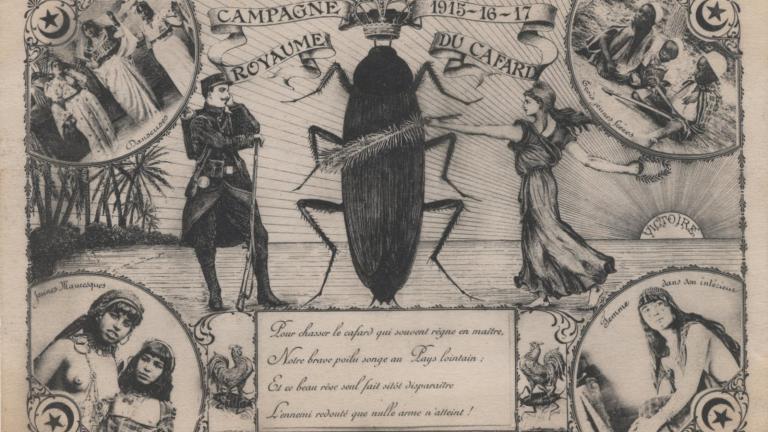 CAMPAGNE 1915-16-17
ROYAUME DU CAFARD
Danseuses
Trois jeunes
VICTOIRE
Jeunes Mauresques
Femme dans son intérieur
Pour chasser le cafard qui souvent règne en maître,
Notre brave poilu songe au Pays lointain ;
Et ce beau rêve seul fait sitôt disparaître
L'ennemi redouté que nulle arme n'atteint !